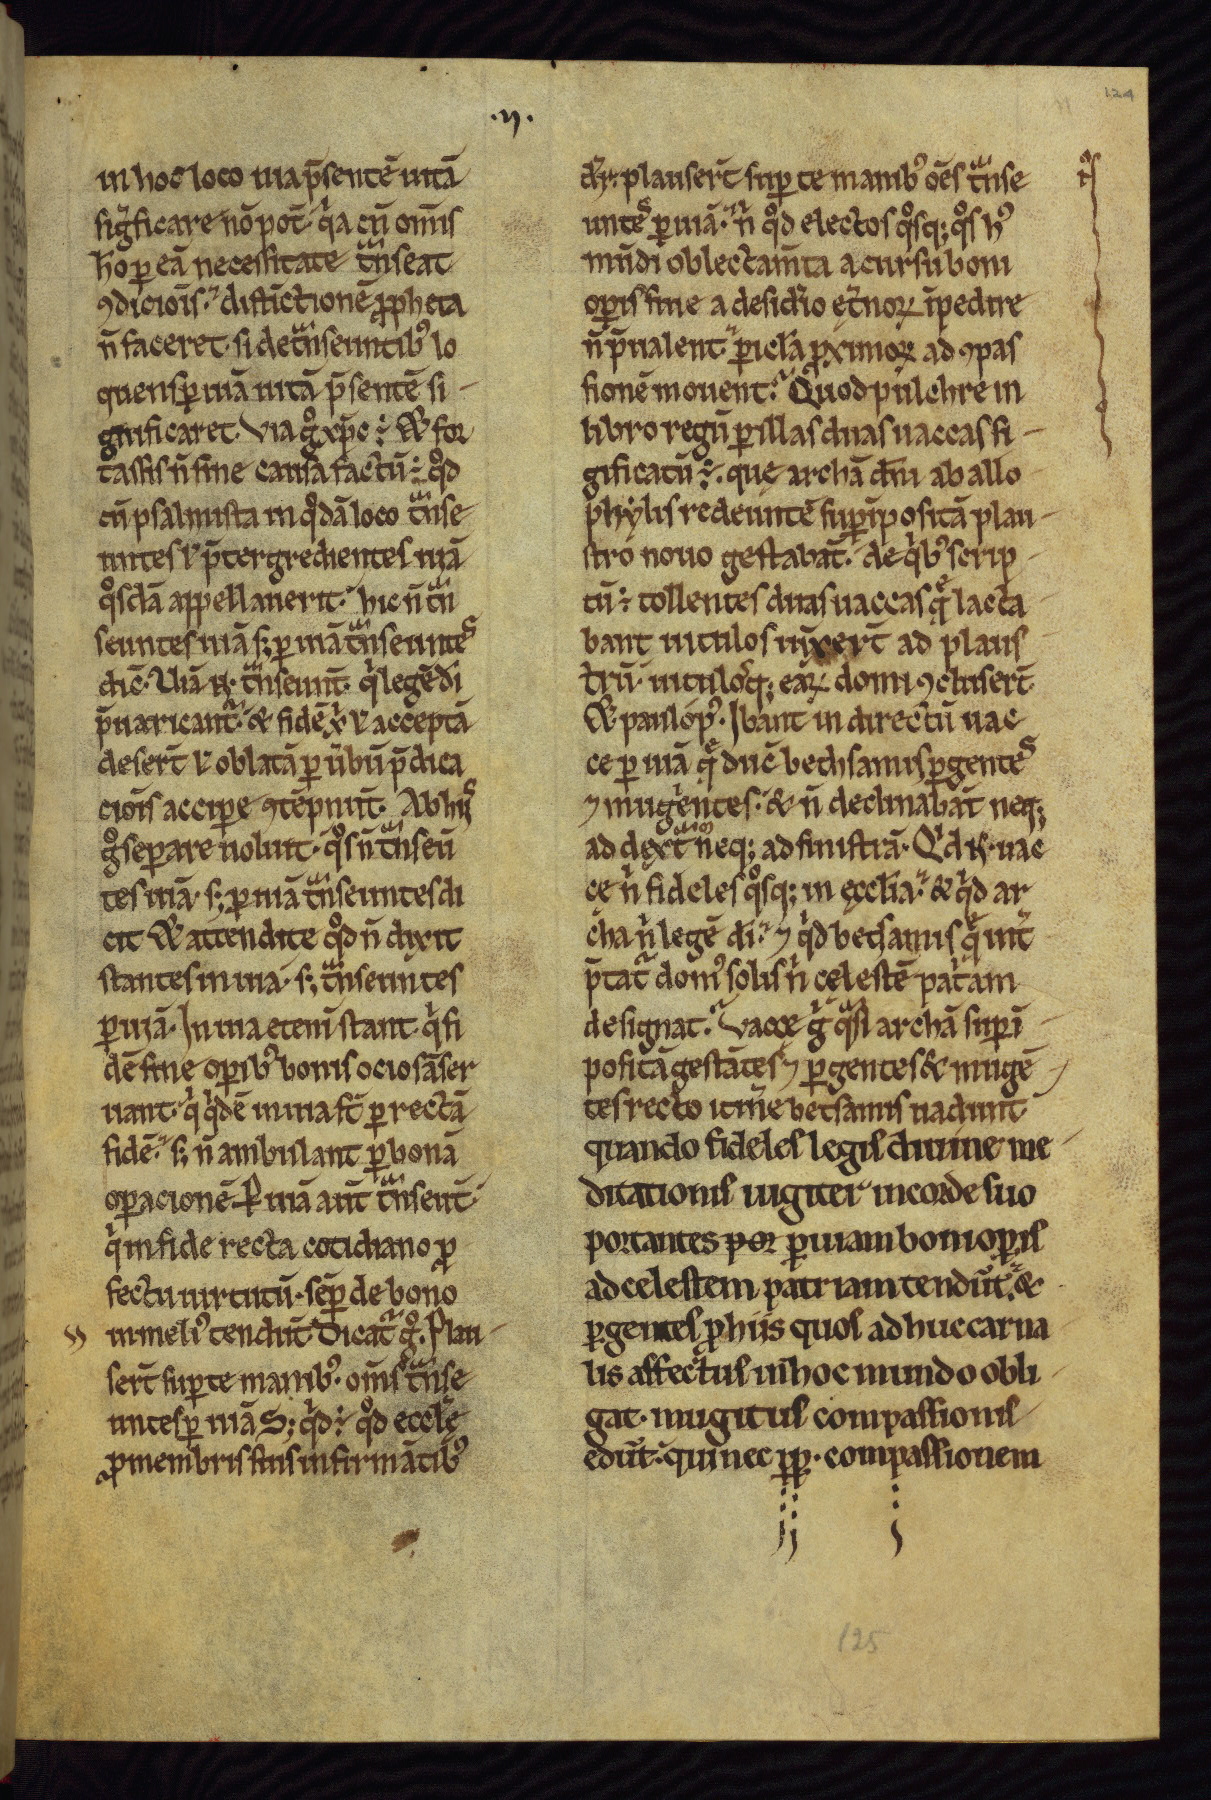 124
.II.
in hoc loco uia p̄sentē uitā
sig̃ficare nō pot̄ · q̾a cū om̄is
hō ꝑ eā necessitate tͣnseat
ꝯdicioīs · distīctionē ꝓpheta
n̄ faceret · si de tͣnseuntibꝰ lo
quens ꝑ uiā uitā p̄sentē si-
gnificaret · Via gͦ xp̄c ÷ ⁊ for
tassis n̄ sine causa factū ÷ qͦd
cū psalmista in qͦdā loco tͣnse
untes ł p̄tergredientes uiā
qͦsdā appellauerit · hic n̄ tͣn
seuntes uiā sꝫ ꝑ uiā tͣnseuntes
dic̄ · Viā tͣnseunt · qͥ legē dī
p̄uaricant̃ · & fidē xͥ ł acceptā
desert̄ ł oblatā ꝑ ūbū p̄dica
cioīs accipe ꝯtēpnūt · Ab hiis
gͦ separare uoluit · qͦs n̄ tͣnseū
tes uiā · sꝫ ꝑ uiā tͣnseuntes di
cit ⁊ attendite qͦd n̄ dixit
stantes in uia · sꝫ tͣnseuntes
ꝑ uiā · In uia etenī stant · qͥ fi
dē sine opībꝰ bonis ociosā ser
uant · qͥ qͥdē in uia st̄ ꝑ rectā
fidē · sꝫ n̄ ambulant ꝑ bonā
opacionē · Ꝑ uiā aūt tͣnseūt ·
qͥ in fide recta cotidiano ꝓ
fectu uirtutū · sēꝑ de bono
in meliꝰ tendūt Dicat̃ gͦ · Plau-
sert̄ suꝑ te manibꝰ · om̄s tͣnse
untes ꝑ uiā Sꝫ qͥd ÷ qͦd eccłę
ꝓ membris suis infirmātibꝰ
dr̄ · plausert̄ suꝑ te manibꝰ oēs tͣnse
untes ꝑ uiā · n̄ qͦd electos qͦsqꝫ qͦs hꝰ
mūdi oblectam̄ta a cursu boni
opis siue a desidīo et̄noꝝ īpedire
n̄ p̄ualent · ꝑicła ꝓximoꝝ ad ꝯpas
sionē mouent · Quod pulchre in
libro regū ꝑ illas duas uaccas si-
gificatū ÷ · quę archā dn̄i ab allo
phylis redeuntē suꝑīpositā plau-
stro nouo gestabāt · de qͥbꝰ scrip-
tū ÷ tollentes duas uaccas qͤ lacta-
bant uitulos iūxert̄ ad plaus-
trū · uitulosqꝫ eaꝝ domi ꝯclusert̄
⁊ paulo pꝰ · Ibant in directū uac
ce ꝑ uiā qͤ duc̄ bethsamis ꝑgentes
⁊ mugientes · & n̄ declinabāt neqꝫ
ad dext̄ͣm neqꝫ ad sinistrā · Qͥd uac
ce n̄ fideles qͦsqꝫ in ecclīa · & qͥd ar
cha n̄ legē dī · ⁊ qͥd betsamis qͤ int̄
p̄tat̃ domꝰ solis n̄ celestē patͥam
designat · Vacce gͦ qͣsi archā suꝑī-
positā gestātes ⁊ ꝑgentes & mugē-
tes recto itin̄e betsamis uadunt
quando fideles legis diuine me-
ditationis iugiter in corde suo
portantes por ꝑ uiam boni opis
ad celestem patriam tendūt · &
ꝑgentes ꝓ hiis quos adhuc carna-
lis affectus in hoc mundo obli-
gat · mugitus compassionis
edūt · qui nec ꝓp̄ · compassionem
125